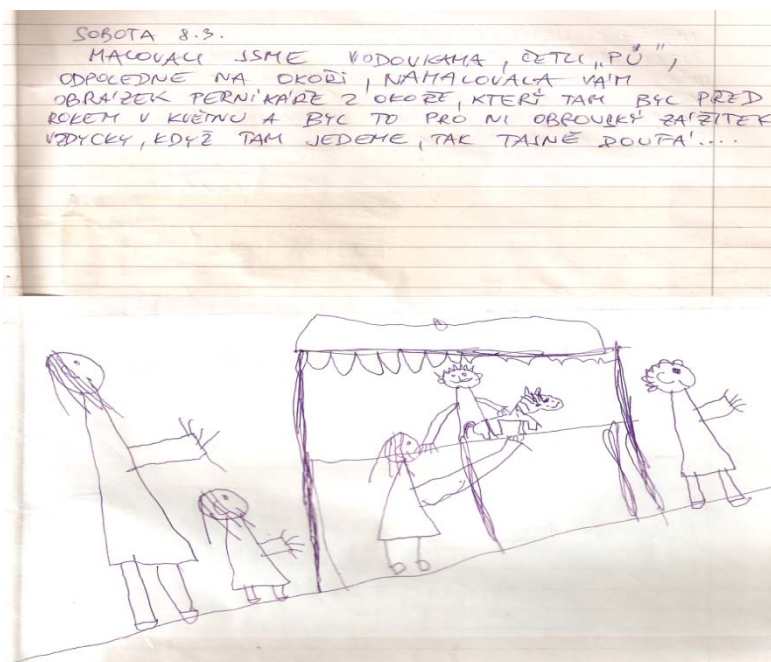 SOBOTA 8.3.
MALOVALI JSME VODOVKAMA, ČETLI „PŮ",
ODPOLEDNE NA OKOŘI, NAMALOVALA VÁM
OBRÁZEK PERNIKÁŘE Z OKOŘE, KTERÝ TAM BYL PŘED
ROKEM V KVĚTNU A BYL TO PRO NI OBROVSKÝ ZÁŽITEK
VŽDYCKY, KDYŽ TAM JEDEME, TAK TAJNĚ DOUFÁ....